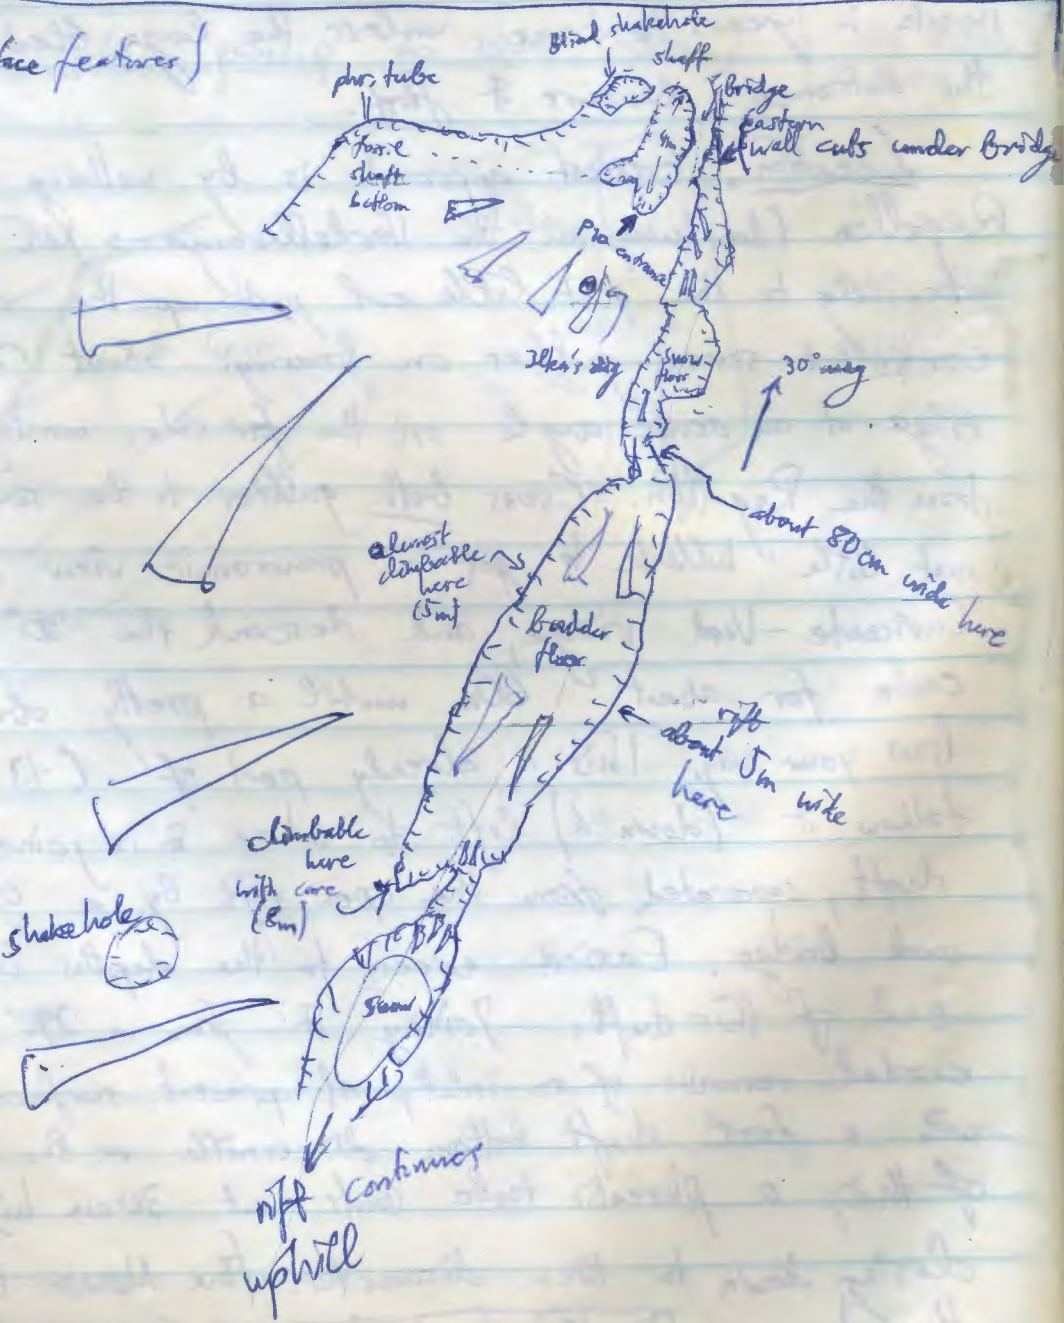 face features)
Blind shakehole
shaft
phr. tube
Bridge
Eastern
wall cuts under Bridge
fossil
shaft
bottom
entrance
Ilka's dig
Snow
floor
30° mag
about 80cm wide
here
almost
climbable
here
(5m)
boulder
floor
rift
about 5m wide
here
climbable
here
with care
(8m)
shakehole
Snow
rift continues
uphill